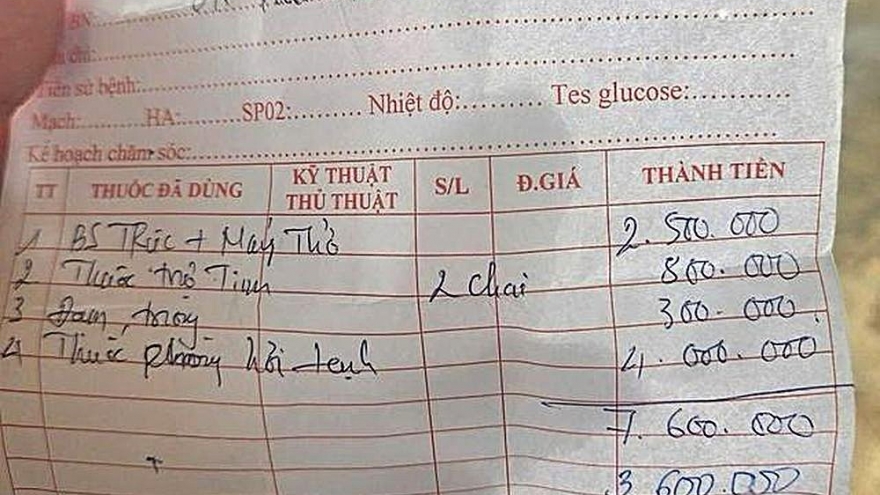 BN:
Tiền sử bệnh:
Mạch: HA: SP02: Nhiệt độ: Tes glucose:
Kế hoạch chăm sóc:
TT THUỐC ĐÃ DÙNG KỸ THUẬT THỦ THUẬT S/L Đ.GIÁ THÀNH TIỀN
1 BS Trực + Máy Thở 2.500.000
2 Thuốc trợ Tim 2 chai 800.000
3 Đạm, 300.000
4 Thuốc phòng hồi 4.000.000
7.600.000
3.600.000